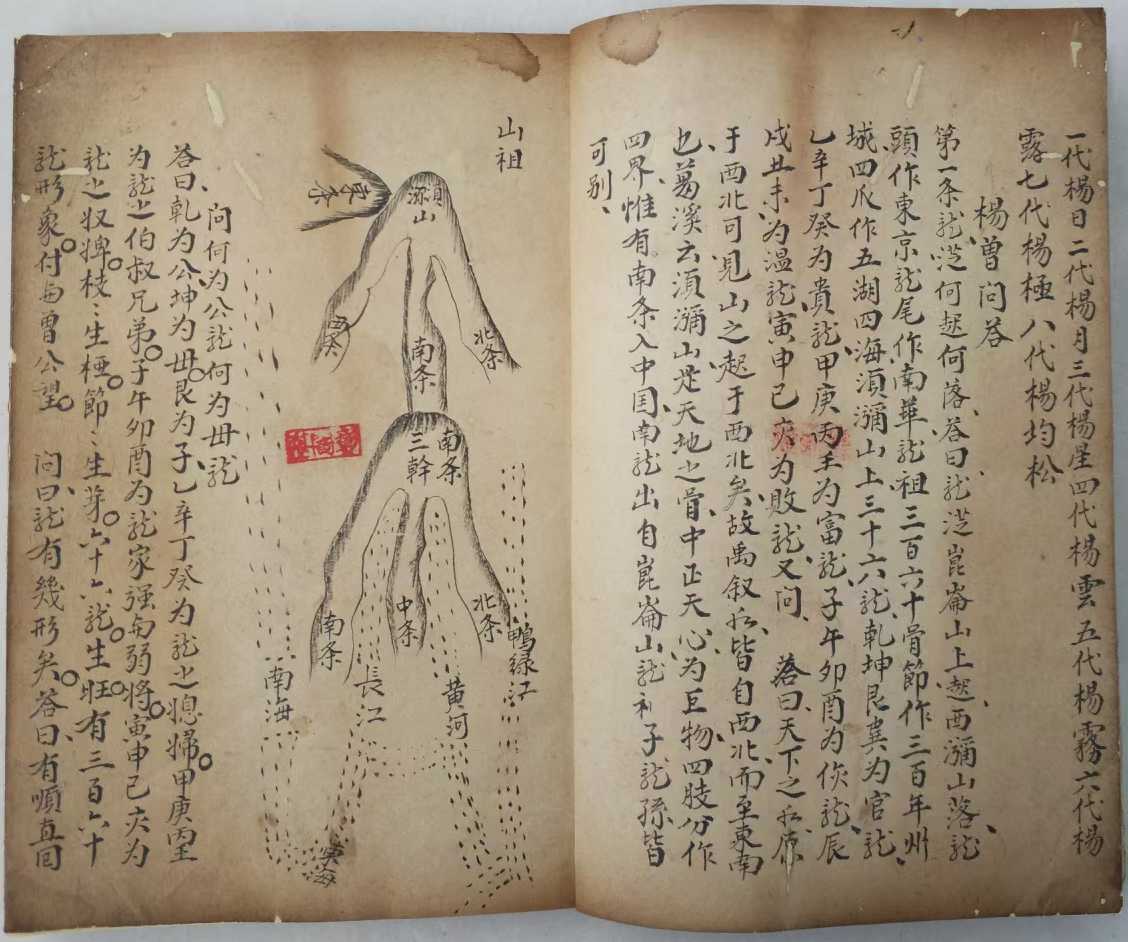 一代楊日二代楊月三代楊星四代楊雲五代楊霧六代楊
露七代楊極八代楊均松
楊曾问荅
第一条龙従何起何落荅曰龙従崑崙山上起西瀰山落龙
頭作東京龙尾作南華龙祖三百六十骨節作三百年州
城四爪作五湖四海湏瀰山上三十六龙乾坤艮巽为官龙
乙辛丁癸为貴龙甲庚丙壬为富龙子午卯酉为侯龙辰
戌丑未为温龙寅申己亥为敗龙又问 荅曰天下之水原
于西北可見山之起于西北矣故禹叙水皆自西北而至東南
也葛溪云湏瀰山是天地之骨中正天心为巨物四肢分作
四界惟有南条入中国南龙出自崑崙山龙祖子龙孫皆
可别
山祖
湏瀰山
東条
西条
南条
北条
南条
三幹
南条
中条
北条
鴨緑江
黄河
長江
南海
東海
问何为公龙何为毌龙
荅曰乹为公坤为毌艮为子乙辛丁癸为龙之媳婦甲庚丙壬
为龙之伯叔兄弟子午卯酉为龙家强與弱将寅申己亥为
龙之奴婢枝〻生極節〻生芽六十六龙生旺有三百六十
龙形象付與曾公望 问曰龙有幾形矣荅曰有順直回